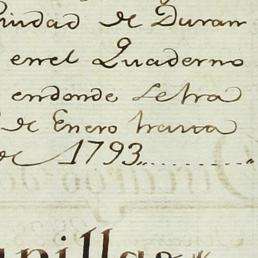 Ciudad de Duran
enel Quaderno
endonde Letra
de Enero hasta
de 1793